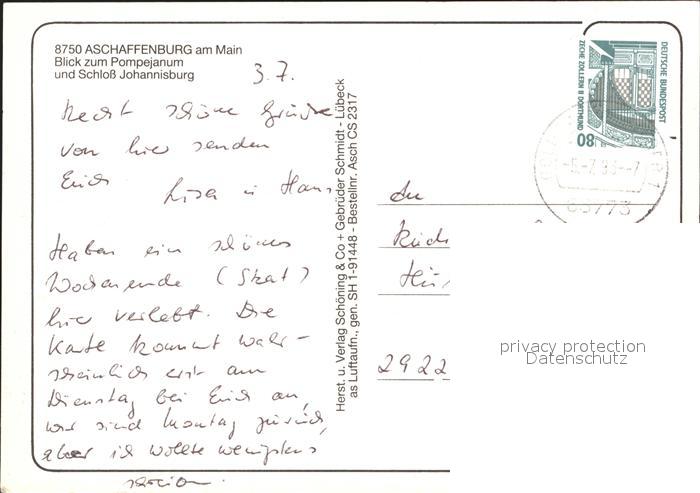 8750 ASCHAFFENBURG am Main
Blick zum Pompejanum
und Schloß Johannisburg
3.7.
Recht schöne Grüsse
von hier senden
Euch Lisa u Hans
Haben ein schönes
Wochenende (Skat)
hier verlebt. Die
Karte kommt wahr-
scheinlich erst am
Dienstag bei Euch an,
wir sind Montag zurück,
aber ich wollte wenigstens
Herst. u. Verlag Schöning & Co + Gebrüder Schmidt - Lübeck
as Luftaufn., gen. SH 1-91448 - Bestellnr. Asch CS 2317
DEUTSCHE BUNDESPOST
ZECHE ZOLLERN II DORTMUND
80
63773
An
2922
privacy protection
Datenschutz